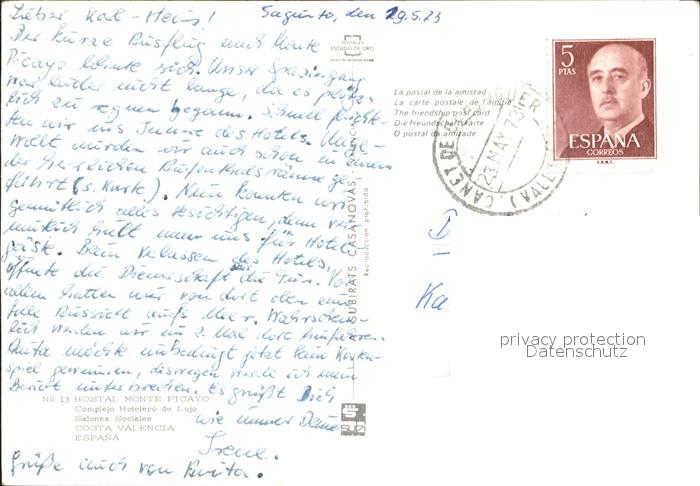 Lieber Karl-Heinz!
Sagunto, den 29.5.73
Der kurze Ausflug nach Monte
Picayo lohnte sich. Unser Spaziergang
war leider nicht lange, da es plötz-
lich zu regnen begann. Schnell flüchte-
ten wir ins Innere des Hotels. Unge-
wollt wurden wir auch schon in einen
der herrlichen Aufenthaltsräume ge-
führt (s. Karte). Nun konnten wir
gemütlich alles besichtigen, denn ver-
mutlich hielt man uns für Hotel-
gäste. Beim Verlassen des Hotels,
öffnete die Dienerschaft uns die Tür. Vor
allem hatten wir von dort oben eine
tolle Aussicht aufs Meer. Wahrschein-
lich werden wir ein 2. Mal dort hinfahren.
Anita möchte unbedingt jetzt beim Karten-
spiel gewinnen, deswegen werde ich mein
Bericht unterbrechen. Es grüßt Dich
wie immer Deine
Irene.
Grüße auch von Anita.
Nº 13 HOSTAL MONTE PICAYO
Complejo Hotelero de Lujo
Salones Sociales
COSTA VALENCIA
ESPAÑA
POSTALES
ESCUDO DE ORO
SUBIRATS CASANOVAS
Reproducción prohibida
La postal de la amistad
La carte postale de l'amitié
The friendship post card
Die Freundschaftskarte
O postal da amizade
CANET DE
23 MAY 73
5
PTAS
ESPAÑA
CORREOS
F.N.M.T.
Ka
privacy protection
Datenschutz